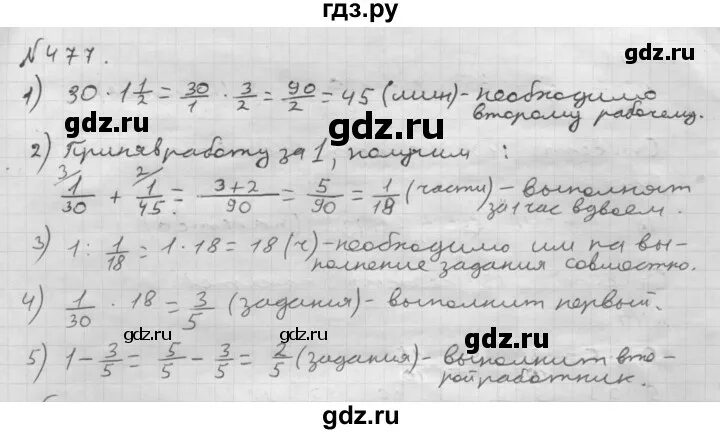 гдз.ру
№477.
gdz.ru gdz.ru
1) 30 · 1 1/2 = 30/1 · 3/2 = 90/2 = 45 (мин) - необходимо
второму рабочему.
gdz.ru
2) Приняв работу за 1, получим :
3/ 2/
1/30 + 1/45 = 3+2/90 = 5/90 = 1/18 (части) - выполнят
за 1 час вдвоем.
gdz.ru gdz.ru
3) 1 : 1/18 = 1 · 18 = 18 (ч) - необходимо им на вы-
полнение задания совместно.
gdz.ru
4) 1/30 · 18 = 3/5 (задания) - выполнит первый.
gdz.ru gdz.ru
5) 1 - 3/5 = 5/5 - 3/5 = 2/5 (задания) - выполнит вто-
рой работник.
gdz.ru